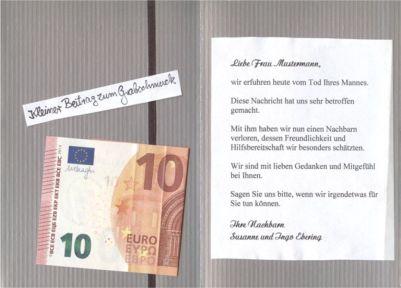 Kleiner Beitrag zum Grabschmuck
10
10
EURO
ΕΥΡΩ
ЕВРО
Liebe Frau Mustermann,
wir erfuhren heute vom Tod Ihres Mannes.
Diese Nachricht hat uns sehr betroffen
gemacht.
Mit ihm haben wir nun einen Nachbarn
verloren, dessen Freundlichkeit und
Hilfsbereitschaft wir besonders schätzten.
Wir sind mit lieben Gedanken und Mitgefühl
bei Ihnen.
Sagen Sie uns bitte, wenn wir irgendetwas für
Sie tun können.
Ihre Nachbarn
Susanne und Ingo Ebering